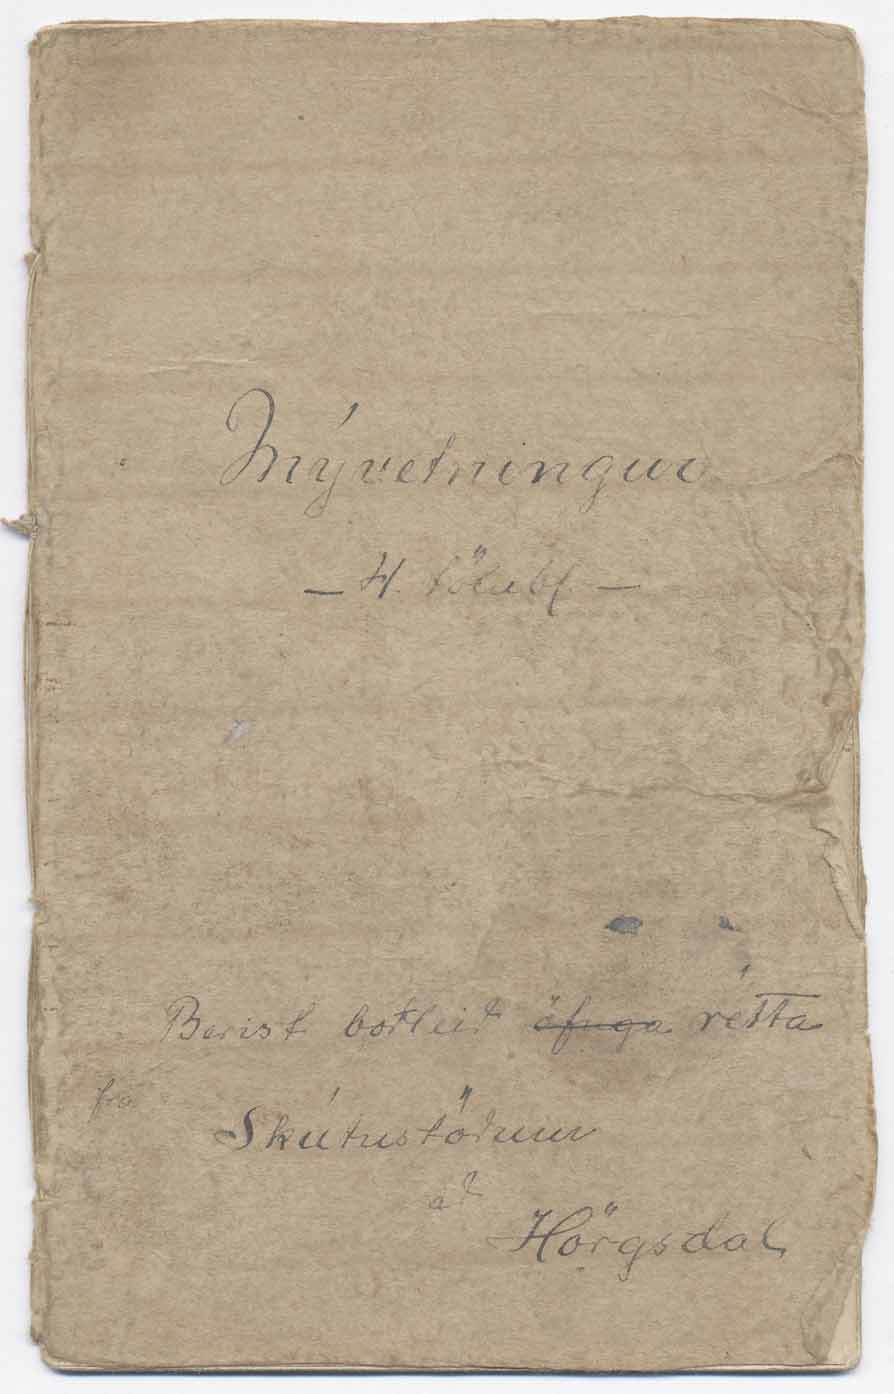 Mývetningur
— 4. tölubl —
Berist boðleið öfuga rétta
frá
Skútustöðum
að
Hörgsdal